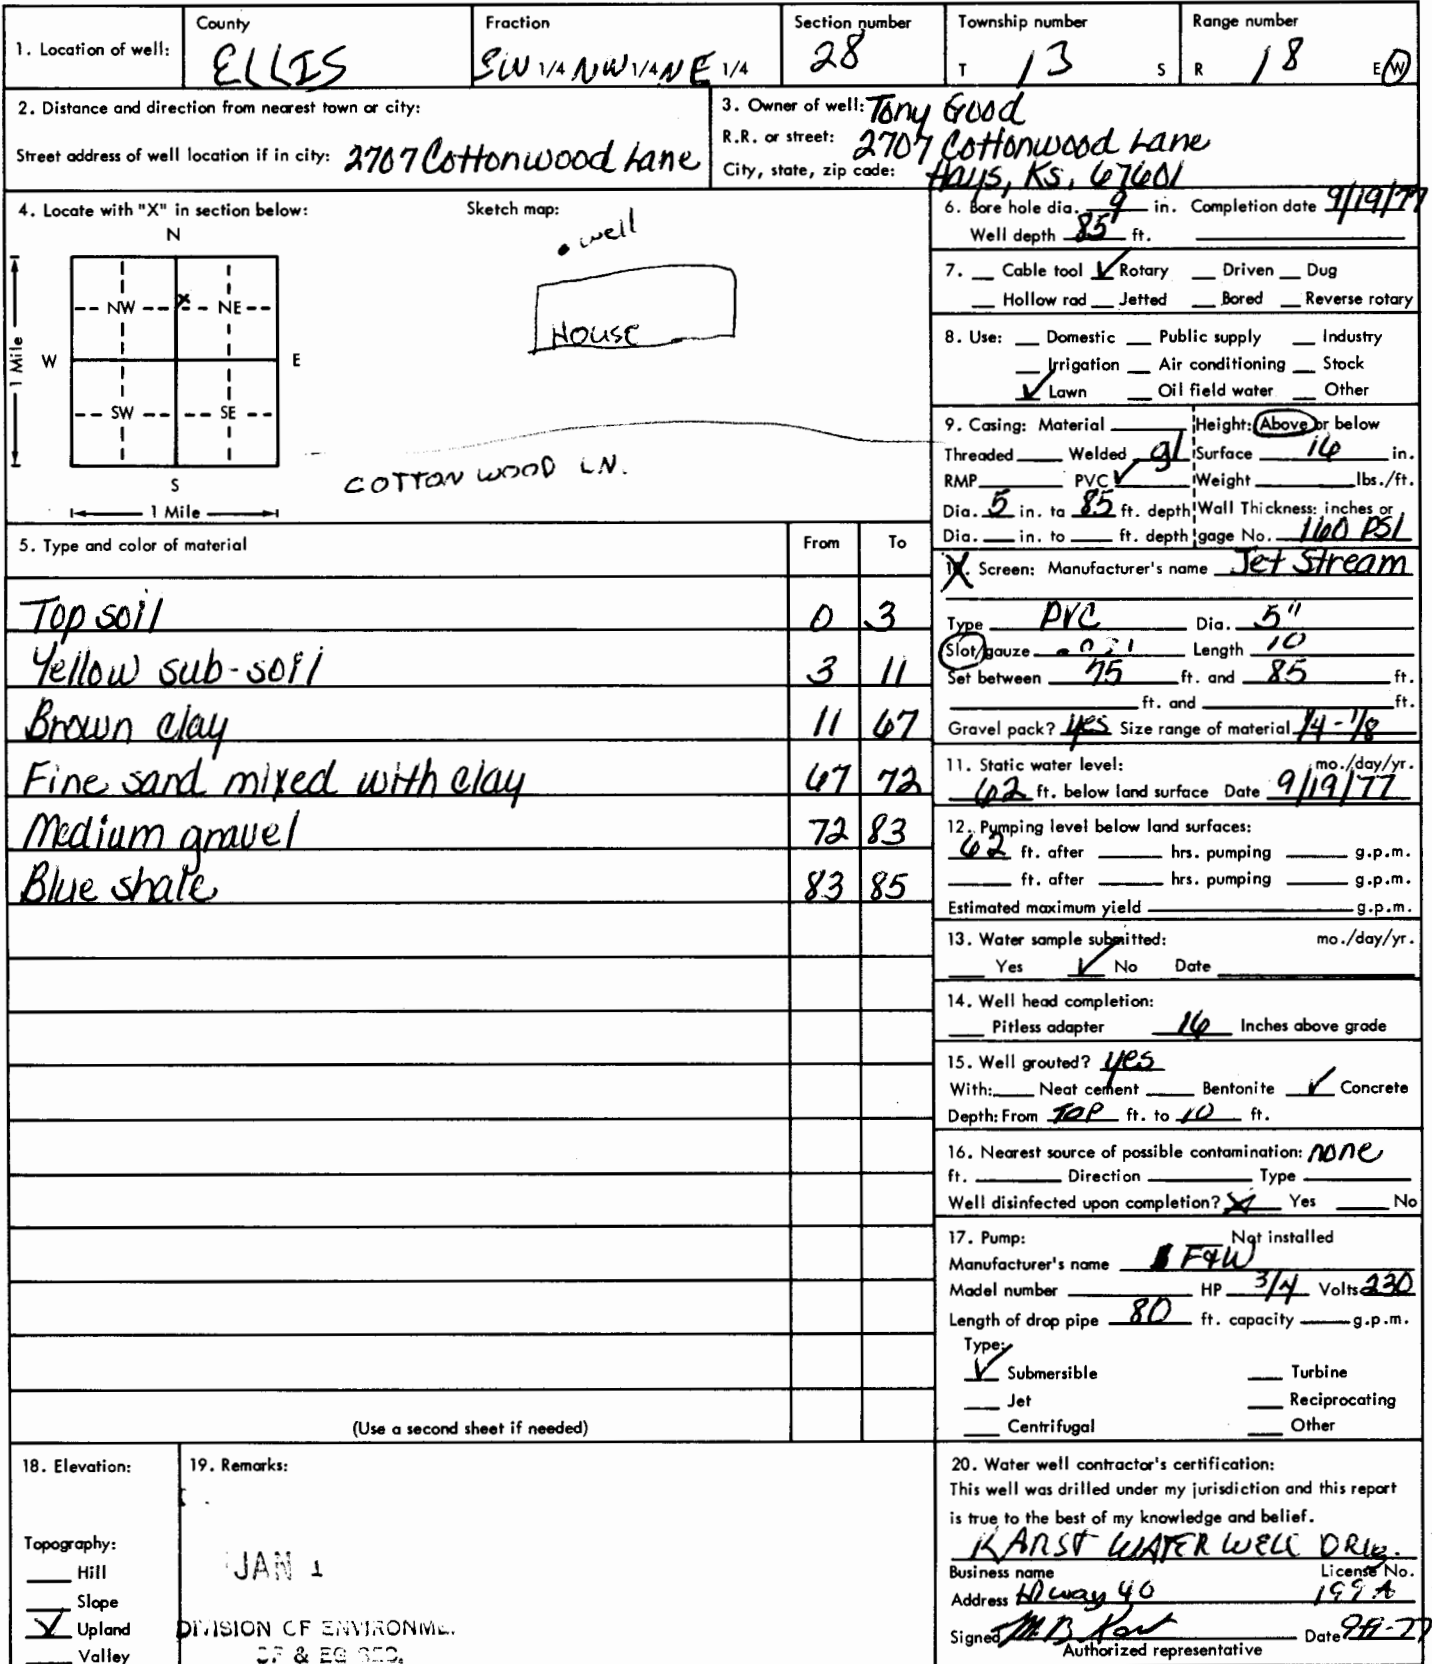 1. Location of well: County ELLIS Fraction SW 1/4 NW 1/4 NE 1/4 Section number 28 Township number T 13 S Range number R 18 E W
2. Distance and direction from nearest town or city:
Street address of well location if in city: 2707 Cottonwood Lane
3. Owner of well: Tony Good
R.R. or street: 2707 Cottonwood Lane
City, state, zip code: Hays, Ks. 67601
4. Locate with "X" in section below:
N
NW x NE
W E
SW SE
S
1 Mile
1 Mile
Sketch map:
well
HOUSE
COTTON WOOD LN.
5. Type and color of material From To
Top soil 0 3
Yellow sub-soil 3 11
Brown clay 11 67
Fine sand mixed with clay 67 72
Medium gravel 72 83
Blue shale 83 85
(Use a second sheet if needed)
6. Bore hole dia. 9 in. Completion date 9/19/77
Well depth 85 ft.
7. Cable tool ✓ Rotary Driven Dug
Hollow rad Jetted Bored Reverse rotary
8. Use: Domestic Public supply Industry
Irrigation Air conditioning Stock
✓ Lawn Oil field water Other
9. Casing: Material Height: Above or below
Threaded Welded gl Surface 16 in.
RMP PVC ✓ Weight lbs./ft.
Dia. 5 in. to 85 ft. depth Wall Thickness: inches or
Dia. in. to ft. depth gage No. 160 PSI
Screen: Manufacturer's name Jet Stream
Type PVC Dia. 5"
Slot/gauze Length 10
Set between 75 ft. and 85 ft.
ft. and ft.
Gravel pack? yes Size range of material 1/4 - 1/8
11. Static water level: mo./day/yr.
62 ft. below land surface Date 9/19/77
12. Pumping level below land surfaces:
62 ft. after hrs. pumping g.p.m.
ft. after hrs. pumping g.p.m.
Estimated maximum yield g.p.m.
13. Water sample submitted: mo./day/yr.
Yes ✓ No Date
14. Well head completion:
Pitless adapter 16 Inches above grade
15. Well grouted? yes
With: Neat cement Bentonite ✓ Concrete
Depth: From TOP ft. to 10 ft.
16. Nearest source of possible contamination: none
ft. Direction Type
Well disinfected upon completion? X Yes No
17. Pump: Not installed
Manufacturer's name F&W
Model number HP 3/4 Volts 230
Length of drop pipe 80 ft. capacity g.p.m.
Type:
✓ Submersible Turbine
Jet Reciprocating
Centrifugal Other
18. Elevation:
Topography:
Hill
Slope
✓ Upland
Valley
19. Remarks:
JAN 1
DIVISION OF ENVIRONME.
20. Water well contractor's certification:
This well was drilled under my jurisdiction and this report
is true to the best of my knowledge and belief.
KARST WATER WELL DRLG.
Business name License No.
Address Hiway 40 199 A
Signed M.B. Karst Date 9-19-77
Authorized representative